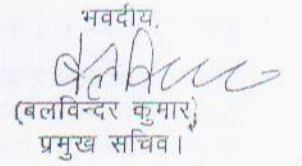 भवदीय,
(बलविन्दर कुमार)
प्रमुख सचिव।